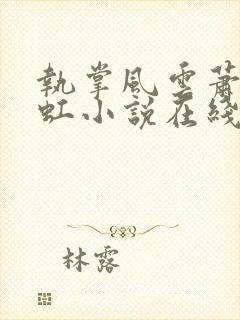 執掌風雲蕭
虹小說在綫
林露